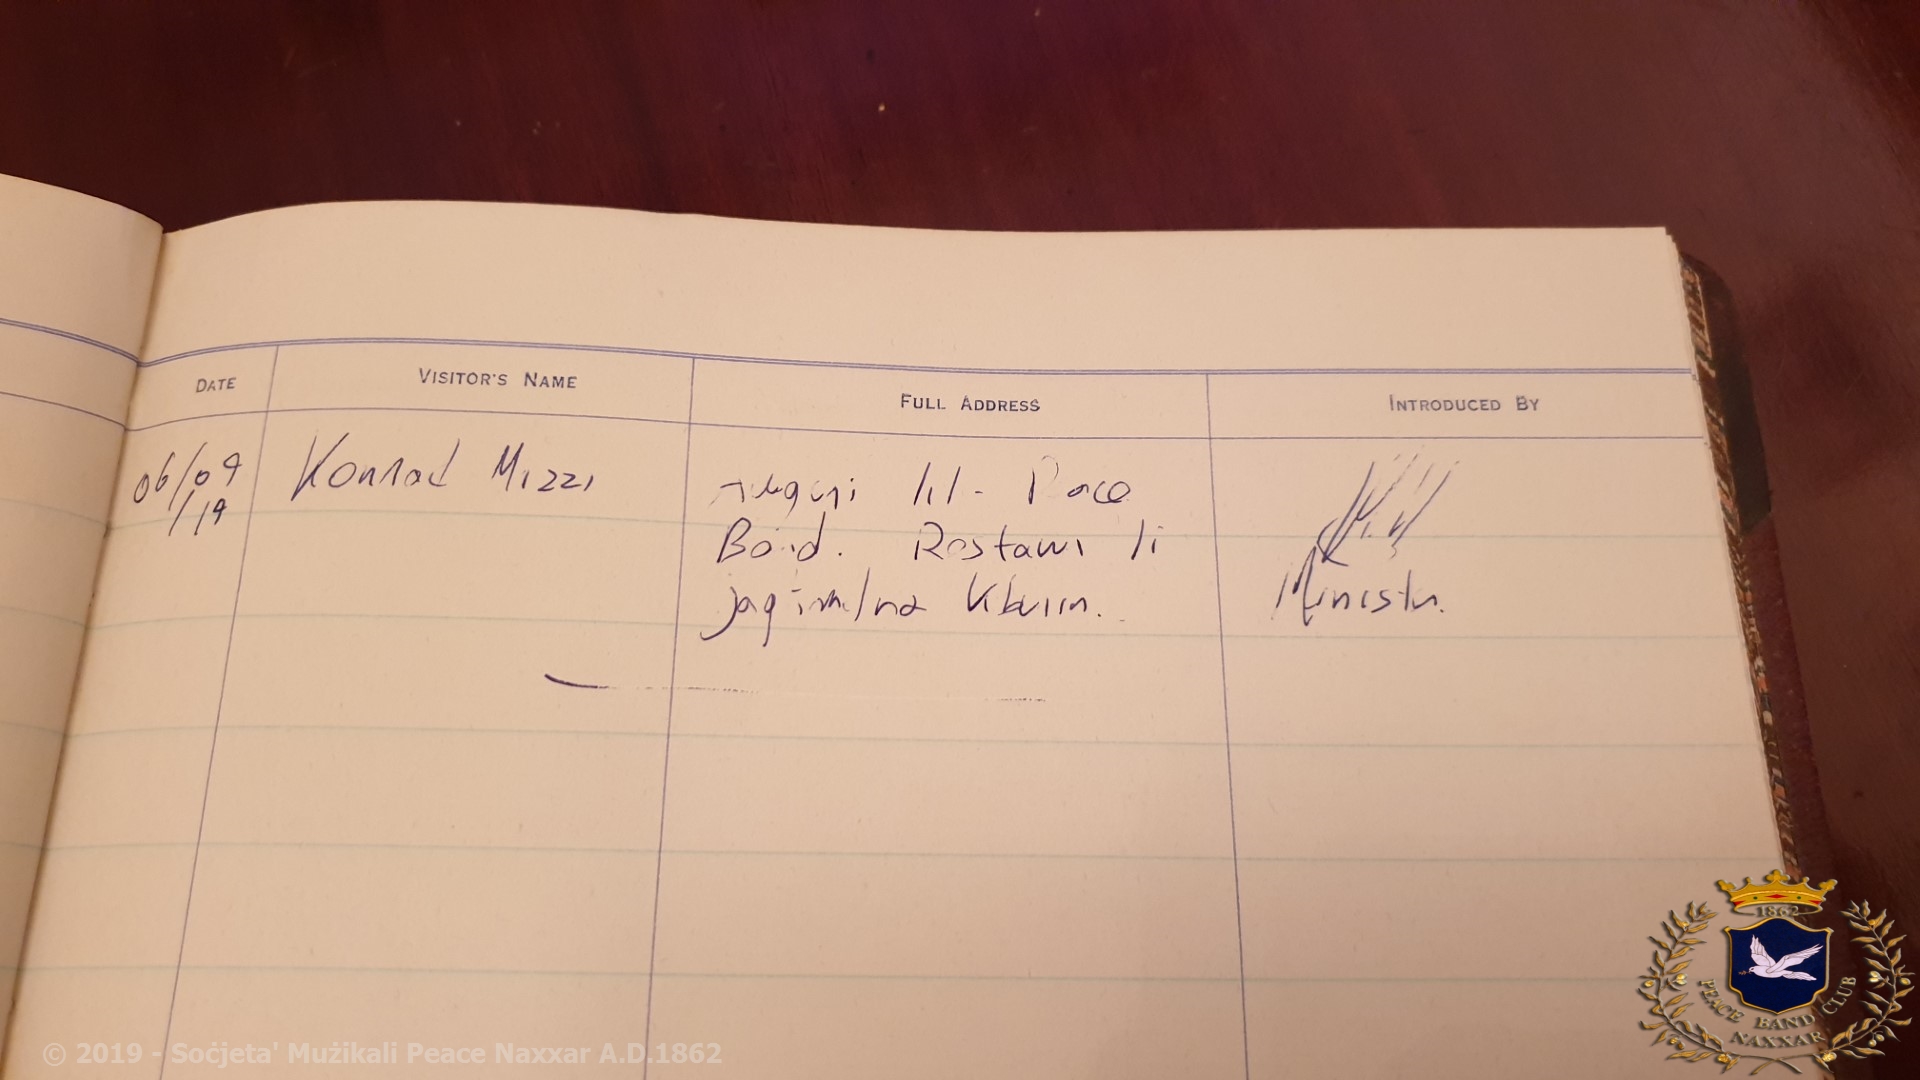 DATE
VISITOR'S NAME
FULL ADDRESS
INTRODUCED BY
06/09
/19
Konrad Mizzi
lil-Peace
Band. Restawr li
jagħmilna kburin.
Ministru.
1862
PEACE BAND CLUB
NAXXAR
© 2019 - Soċjeta' Mużikali Peace Naxxar A.D.1862